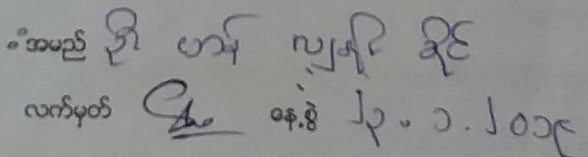 အမည် ဦး ဟန် လျှမ်း နိုင်
လက်မှတ် နေ့စွဲ ၂၃.၁.၂၀၁၉